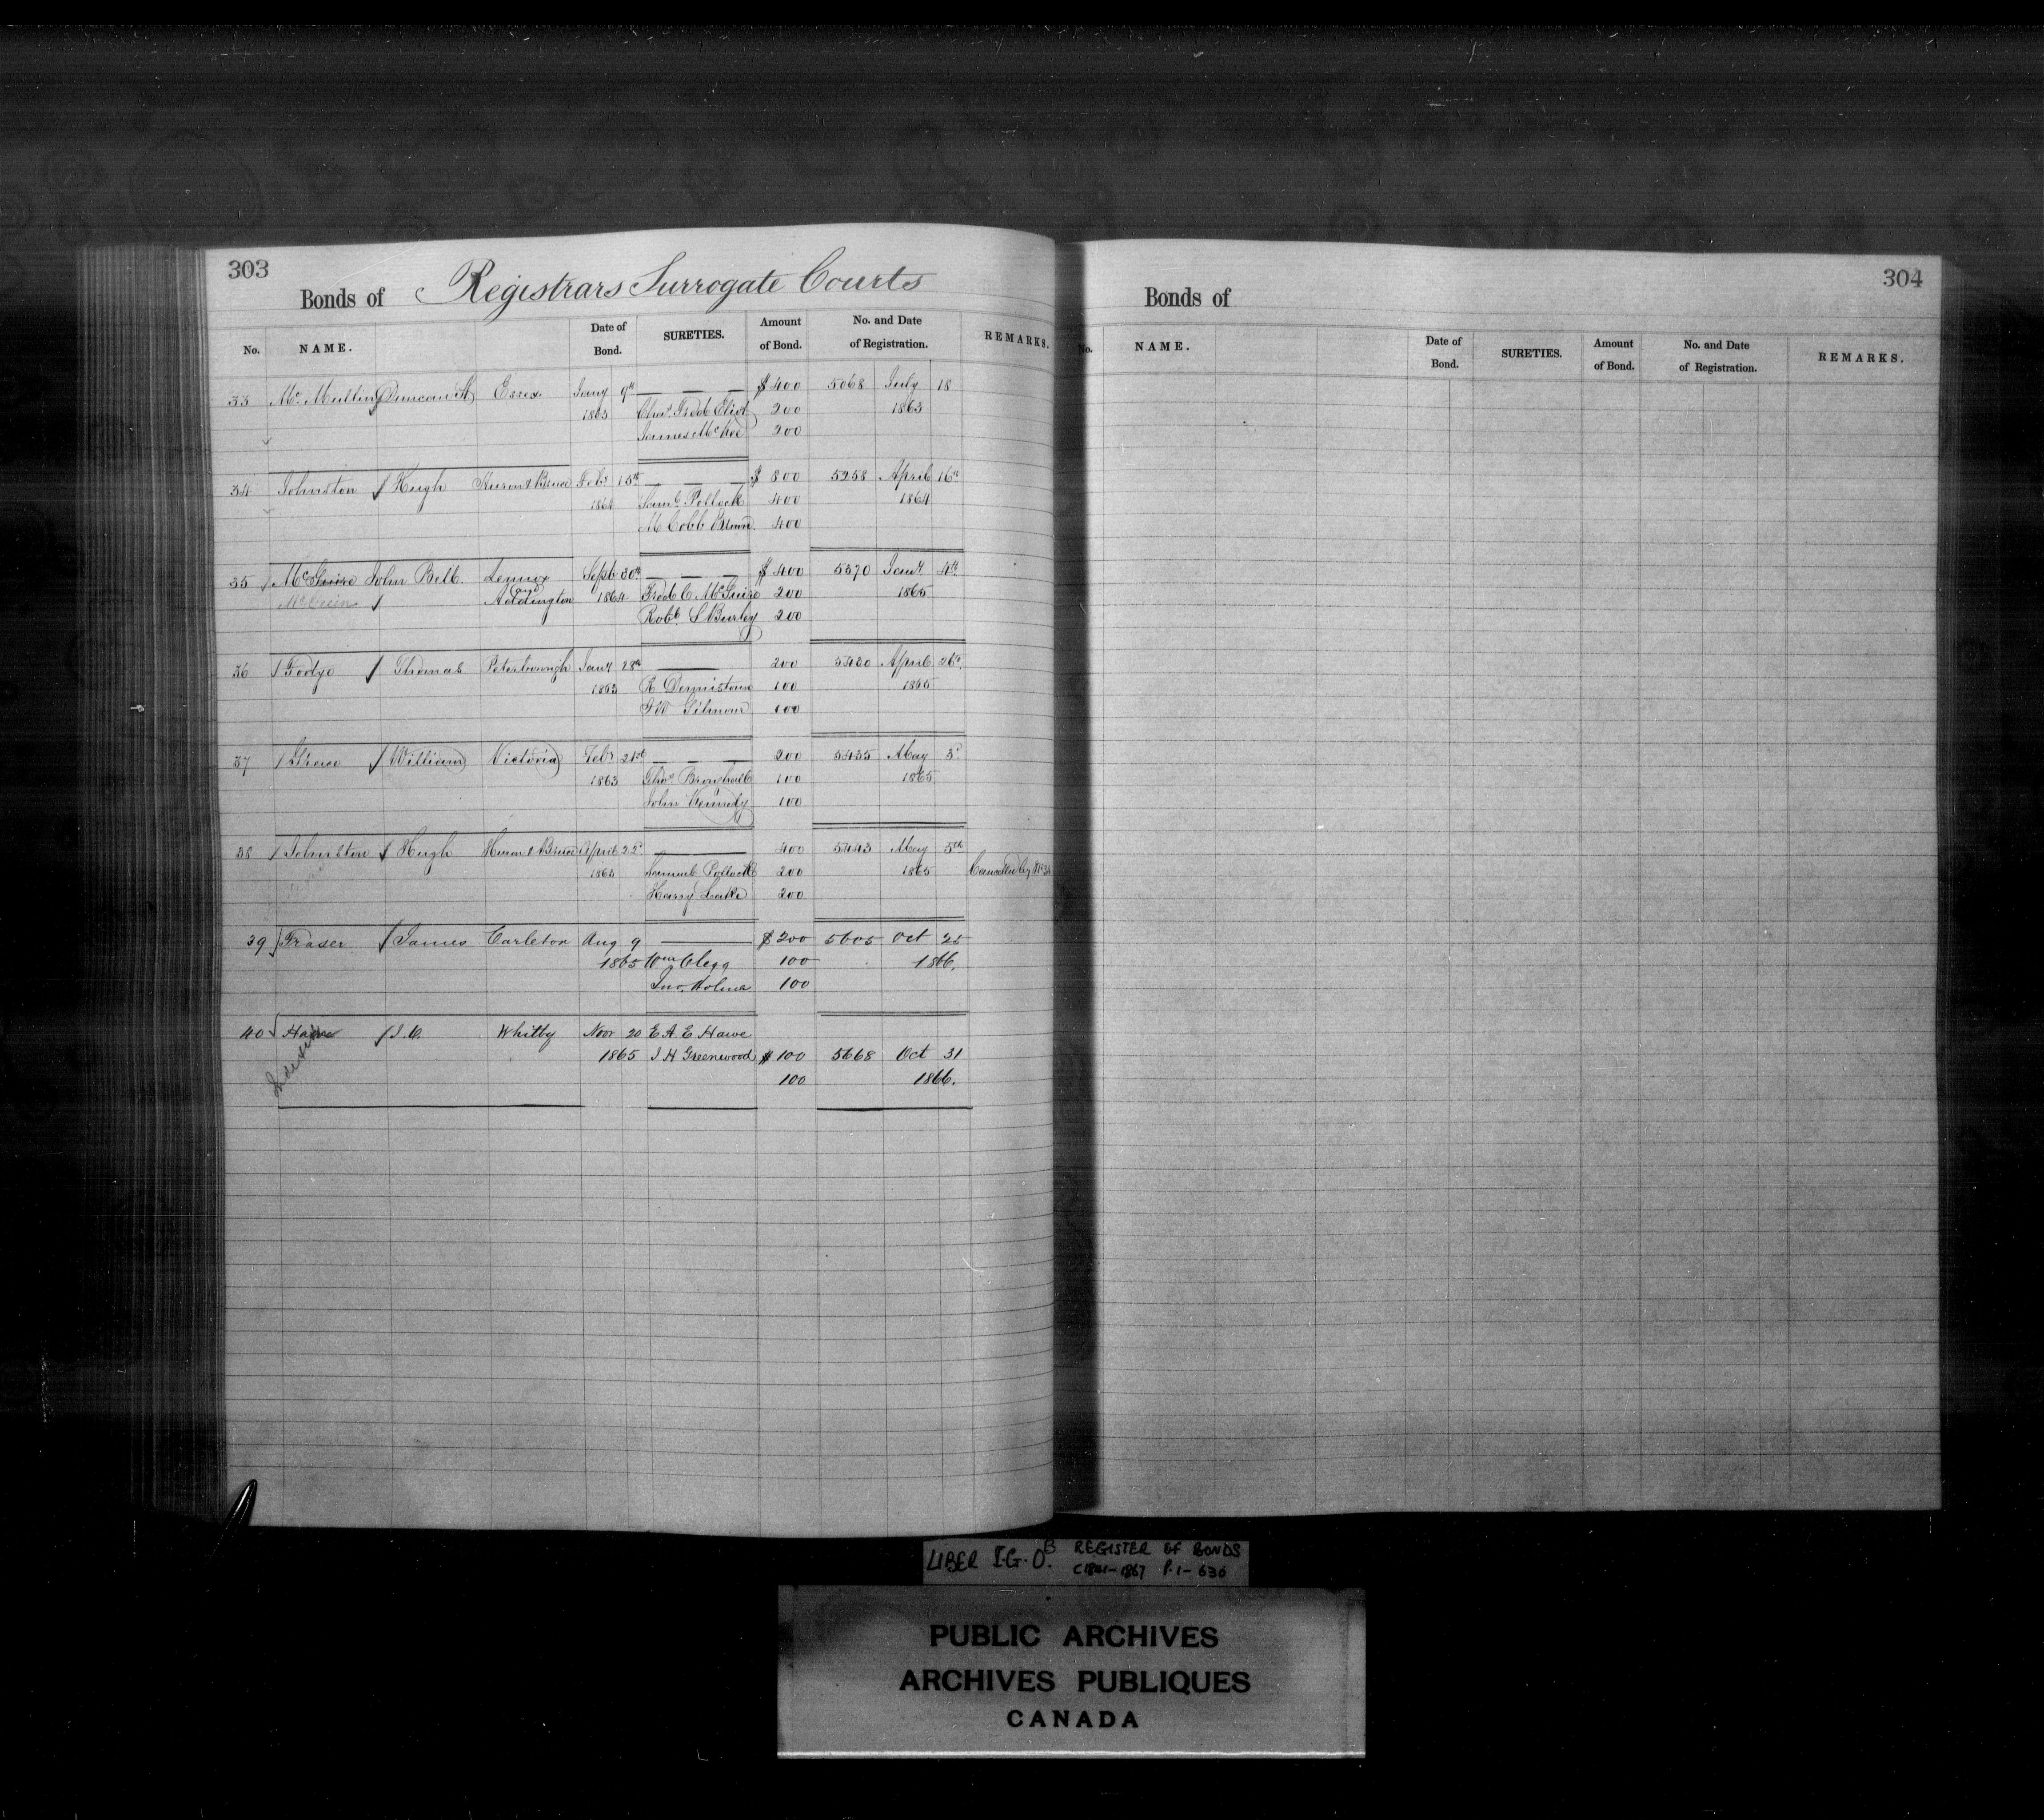 303
Bonds of Registrars Surrogate Courts
No. NAME. Date of Bond. SURETIES. Amount of Bond. No. and Date of Registration. REMARKS.
33 McMullin Duncan Essex Jany 9th — — — $ 400 5068 July 18
1863 Chas Fredk Eliot 200 1863
James McKee 200
34 Johnston Hugh Huron & Bruce Feby 15th — — — $ 800 5258 April 16th
1864 Saml Pollock 400 1864
M Cobb Brown 400
35 McGuire John Bell. Lennox Septb 30th — — — $ 400 5370 Jany 4th
and Addington 1864 Fredk C McGuire 200 1865
Robt S Burley 200
36 Fortye Thomas Peterborough Jany 28th — 200 5420 April 26th
1863 R Dennistoun 100 1865
FW Gilmour 100
37 Grace William Victoria Feby 21st — — 200 5435 May 3d
1863 100 1865
John Kennedy 100
38 Johnston Hugh Huron & Bruce April 22d — 400 5443 May 5th
1863 Samuel Pollock 200 1865 Cancelled by No 34
Harry Lake 200
39 Fraser James Carleton Aug 9 — $ 200 5605 Oct 25
1865 Wm Clegg 100 1866.
Jno. Holmes 100
40 Hawe Whitby Novr 20 E A. E Hawe
1865 J H Greenwood $ 100 5668 Oct 31
100 1866.
Indexed
304
Bonds of
No. NAME. Date of Bond. SURETIES. Amount of Bond. No. and Date of Registration. REMARKS.
LIBER I.G.O.B REGISTER OF BONDS
C1841-1867 P.1-630
PUBLIC ARCHIVES
ARCHIVES PUBLIQUES
CANADA